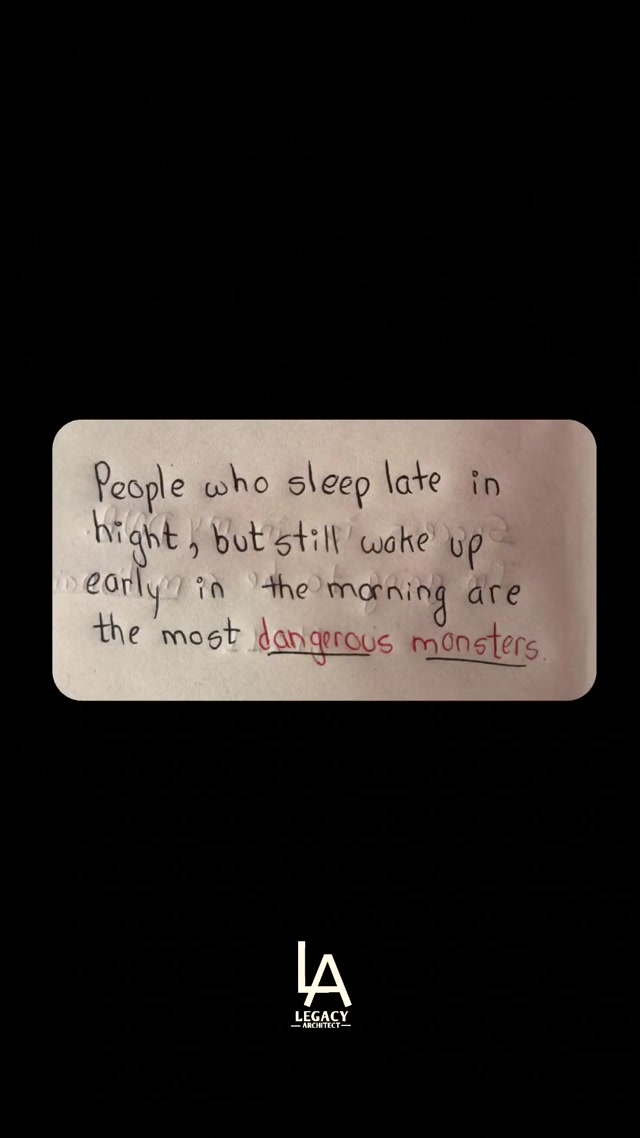 People who sleep late in
hight, but still wake up
early in the morning are
the most dangerous monsters.
LA
LEGACY
ARCHITECT